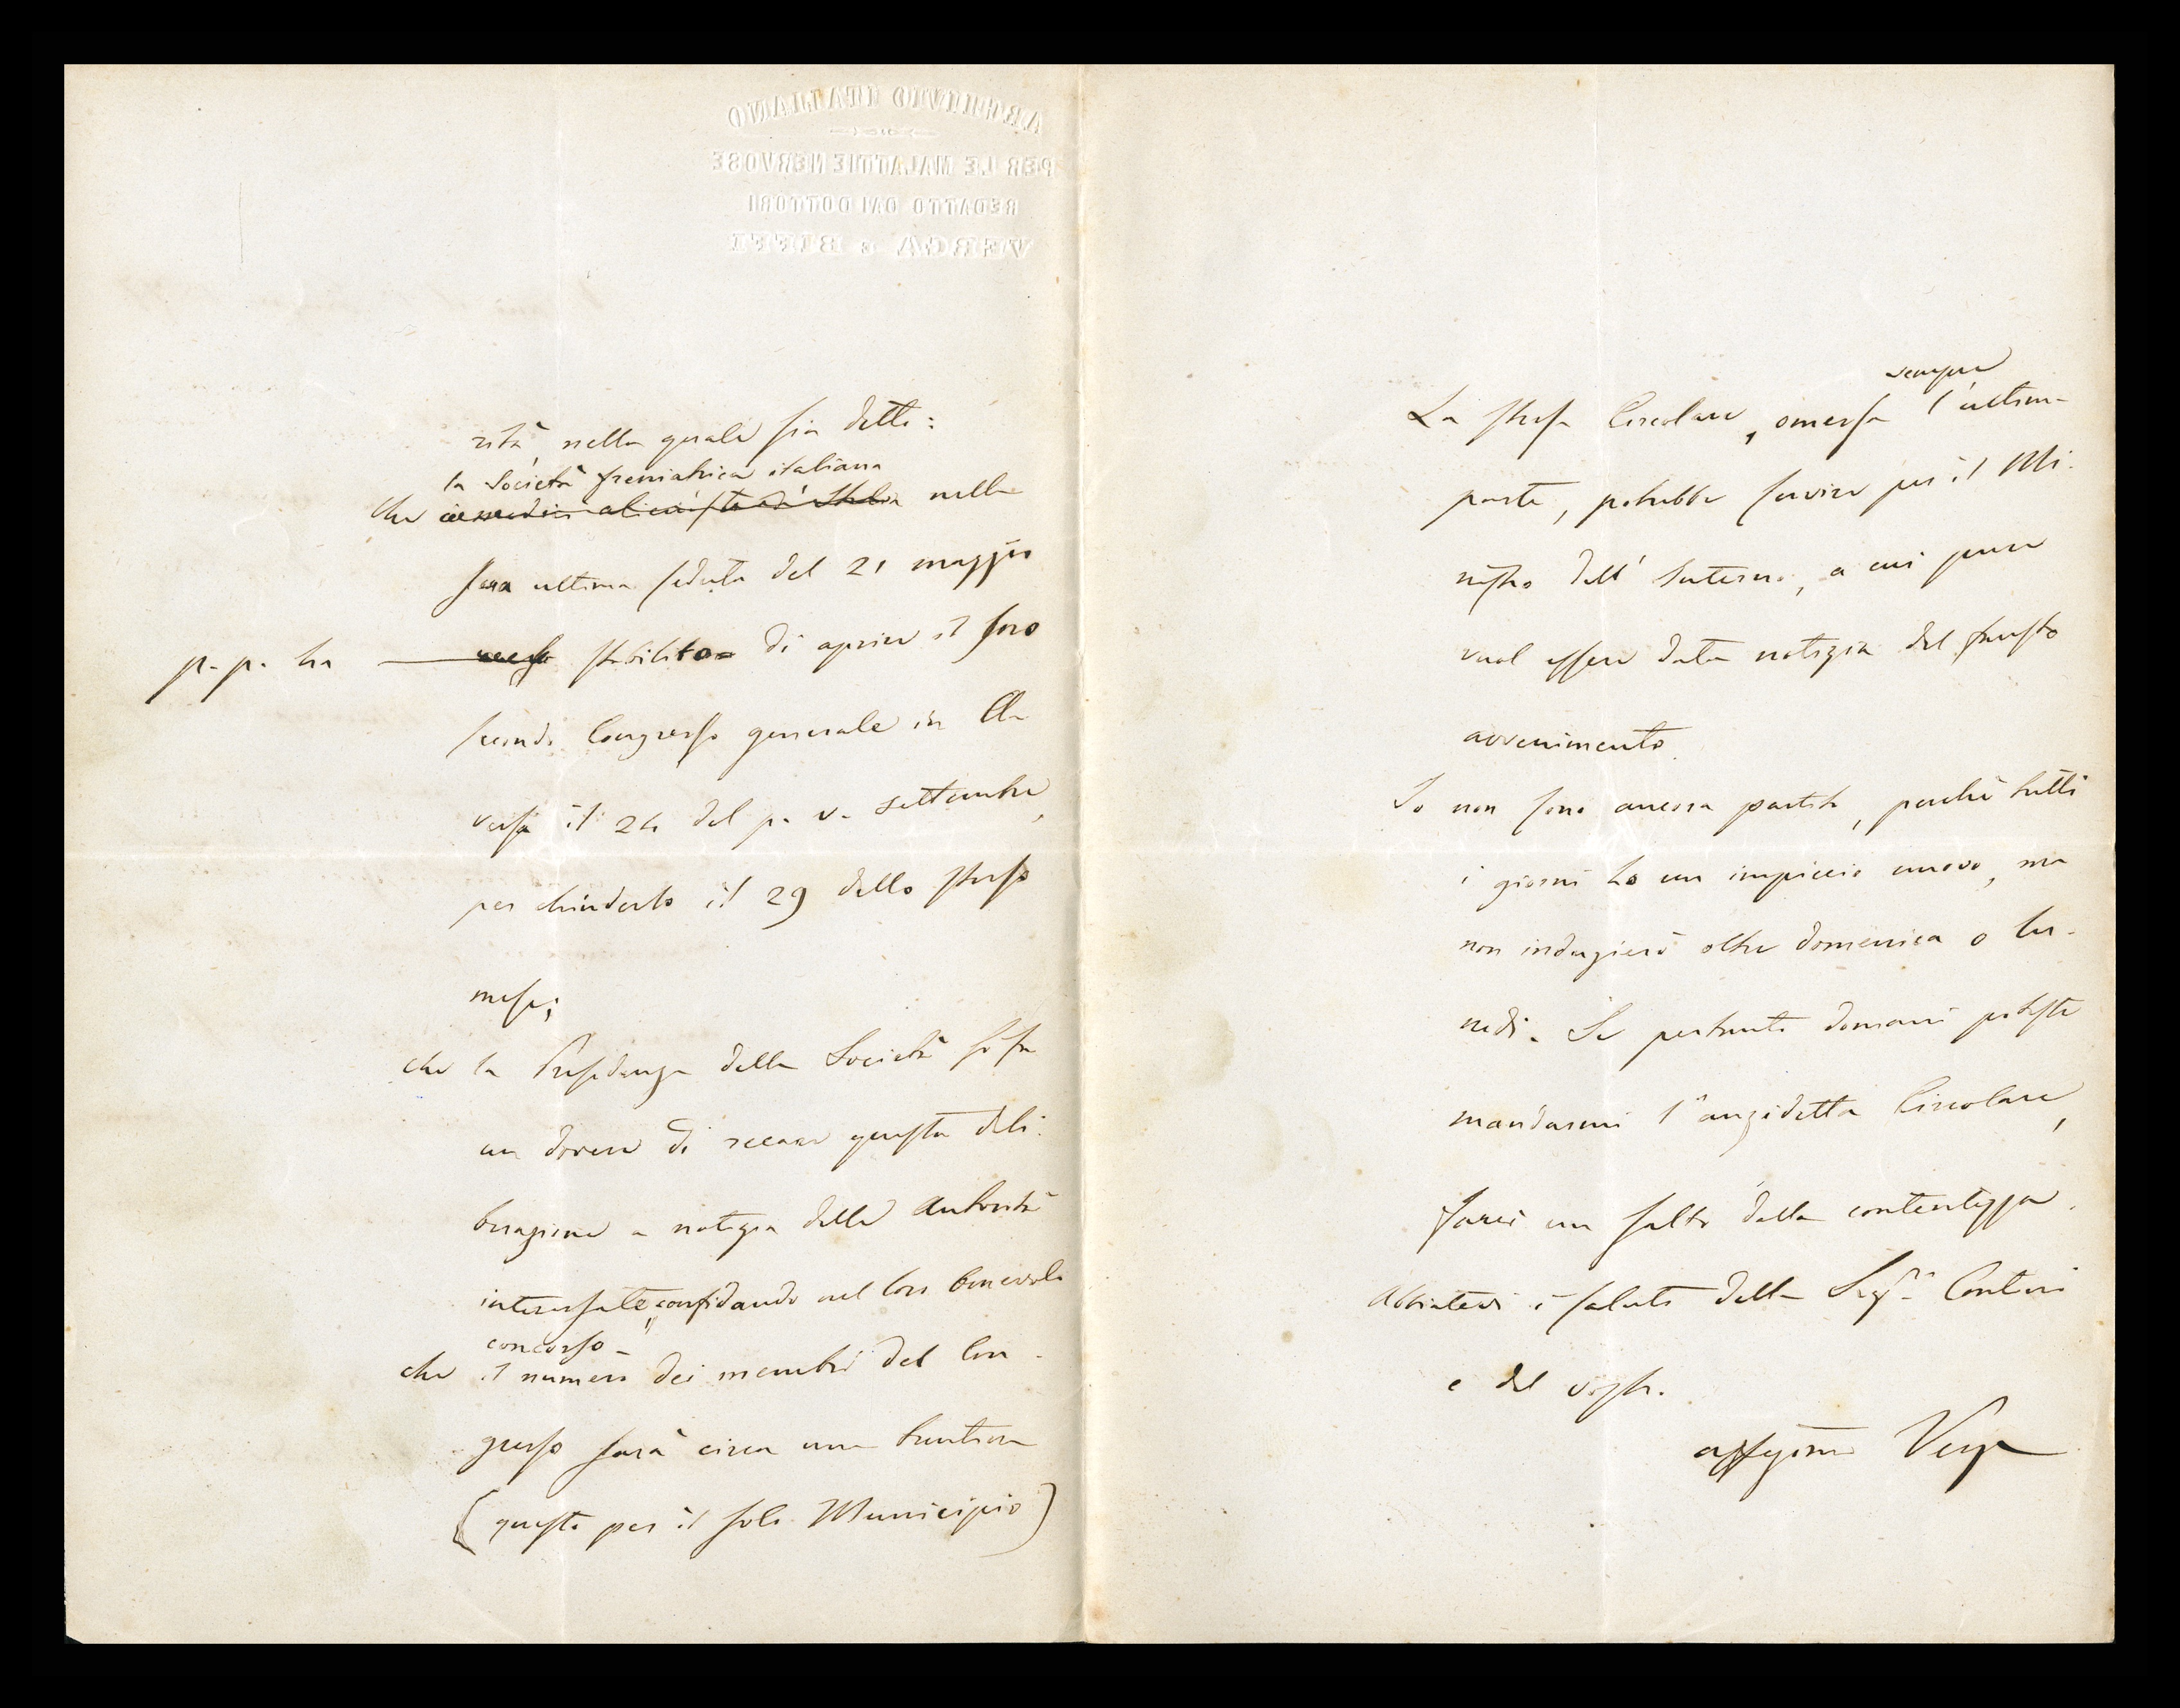 ARCHIVIO ITALIANO
PER LE MALATTIE NERVOSE
REDATTO DAI DOTTORI
VERGA e BIFFI
rità, nella quale sia detto:
la Società freniatrica italiana
che nella
sua ultima seduta del 21 maggio
p. p. ha stabilito di aprire il suo
secondo Congresso generale in A
versa il 24 del p. v. settembre,
per chiuderlo il 29 dello stesso
mese;
che la Presidenza della Società si fa
un dovere di recare questa deli-
berazione a notizia delle Autorità
interessate, confidando nel loro benevolo
concorso -
che il numero dei membri del Con-
gresso sarà circa una trentina
(questo per il solo Municipio)
La stessa Circolare, omessa sempre l'ultima
parte, potrebbe servire per il Mi-
nistro dell'Interno, a cui pure
vuol essere data notizia del fausto
avvenimento.
Io non sono ancora partito, perchè tutti
i giorni ho un impiccio nuovo, ma
non indugierò oltre domenica o lu-
nedì. Se pertanto domani poteste
mandarmi l'anzidetta Circolare,
farei un salto dalla contentezza.
Abbiatevi i saluti della Sigra Contini
e del vostro
affezmo Verga